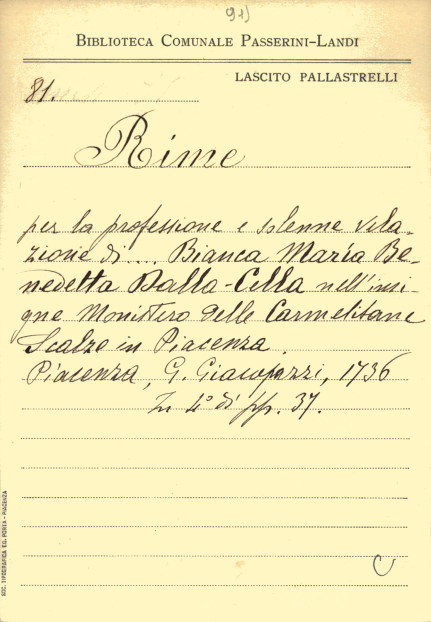 91)
BIBLIOTECA COMUNALE PASSERINI-LANDI
LASCITO PALLASTRELLI
81.
Rime
per la professione e solenne vela-
zione di.... Bianca Maria Be-
nedetta Dalla-Cella nell'insi-
gne Monistero delle Carmelitane
Scalze in Piacenza.
Piacenza, G. Giacopazzi, 1736
In 4° di pp. 37.
SOC. TIPOGRAFICA ED. PORTA - PIACENZA